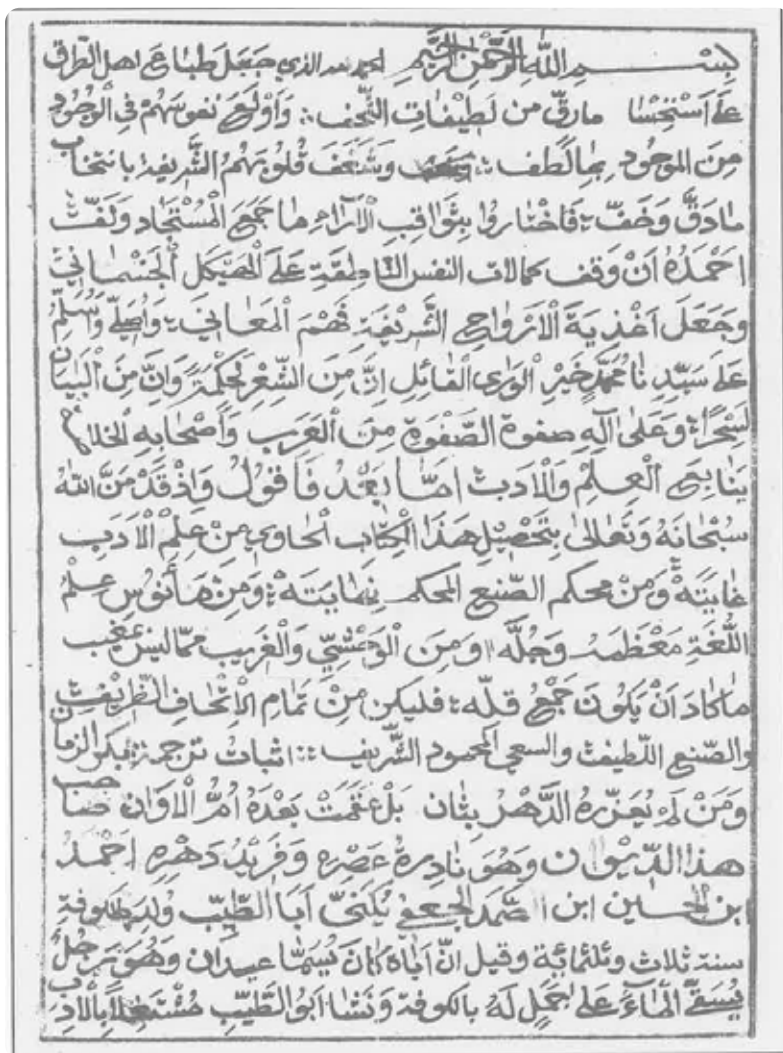 بِسْمِ اللَّهِ الرَّحْمَنِ الرَّحِيمِ الحمد لله الذي جَعَلَ طباع اهل
عَلَى اَسْتِحْسَا مارقّ من لَطِيْفَاتِ التُّحَف وَاَوْلَعَ نفوسَهُمْ في الْوُجُود
مِنَ الموجُودِ بِمَا لَطف وَشَغَفَ قُلُوبَهُمُ الشَّرِيفَةَ بانتخاب
مَادَقَّ وَخَفَّ فَاخْتارُوا بِثَوَاقِبِ الْاَرَاءِ مَا جَمَعَ الْمُسْتَجاد وَلَفَّ
اَحْمَدُهُ اَنْ وَقف كمالات النفس النَّاطِقَةِ عَلَى الْهَيْكَلِ الْجُسْمَانِيِّ
وَجَعَلَ اَغْذِيَةَ الْاَرْوَاحِ الشَّرِيْفَةِ فَهْمَ الْمَعَانِي وَاُصَلِّي وَاُسَلِّمُ
عَلَى سَيِّدِنَا مُحَمَّدٍ خَيْرِ الْوَرَى الْقَائِلِ اِنَّ مِنَ الشِّعْرِ لَحِكْمَةً وَاِنَّ مِنَ الْبَيَانِ
لَسِحْرًا وَعَلَى آلِهِ صفوة الصَّفْوَةِ مِنَ الْعَرَبِ وَاَصْحَابِهِ
يَنَابِيعِ الْعِلْمِ وَالْاَدَبِ اَمَّا بَعْدُ فَاَقُولُ وَاِذْ قَدْ مَنَّ اللهُ
سُبْحَانَهُ وَتَعَالَى بِتَحْصِيْلِ هَذَا الْكِتَابِ الْحَاوِي مِنْ عِلْمِ الْاَدَبِ
غَايَتَهُ وَمِنْ محكم الصّنيع المحكم نِهَايَتَهُ وَمِنْ مَأْنُوسِ عِلْمِ
اللُّغَةِ مُعْظَمَهُ وَجُلَّهُ وَمِنَ الْوَحْشِيِّ وَالْغَرِيبِ مِمَّا ليس
مَاكَادَ اَنْ يَكُونَ جَمْعُ قلّه فليكن مِنْ تَمَامِ الْاِتْحَافِ الظَّرِيفِ
والصّنيع اللّطيف والسعي المحمود الشَّرِيف اثبات ترجمة بكر الزمان
وَمَنْ لَمْ يُعَزِّزْهُ الدَّهْرُ بِثَان بَلْ عَقَمَتْ بَعْدَهُ اُمُّ الْاَوَان صاحب
هذا الدِّيْوَان وَهُوَ نَادِرَةُ عَصْرِهِ وَفَرِيْدُ دَهْرِهِ اَحْمَدُ
ابن الحسين ابن الصَّمَد الجعفي يُكَنَّى اَبَا الطَّيِّبِ وُلِدَ بالكوفة
سنة ثلاث وثلثمائة وقيل انّ اَبَاهُ كَانَ يُسَمَّا عيدان وَهُوَ رَجُلٌ
يُسْقِي الْمَاءَ عَلَى جَمَلٍ لَهُ بالكوفة وَنَشَا اَبُو الطَّيِّبِ مُشْتَغِلًا بِالْاَدَب